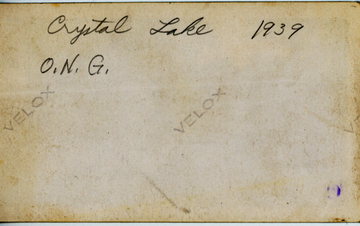 Crystal Lake 1939
O.N.G.
VELOX
VELOX